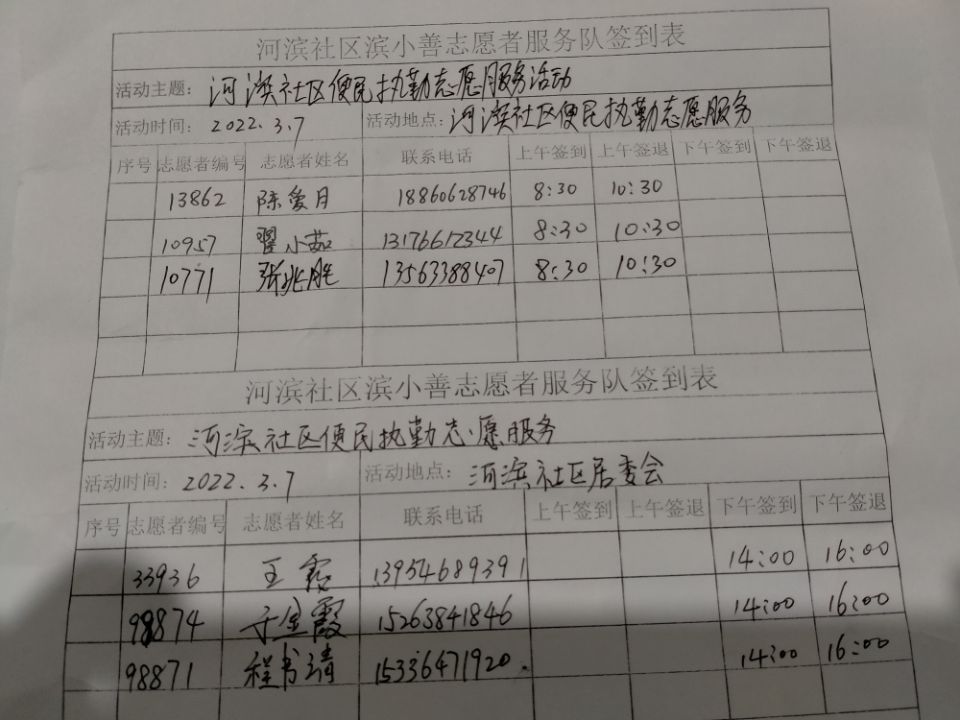 河滨社区滨小善志愿者服务队签到表
活动主题: 河滨社区便民执勤志愿服务活动
活动时间: 2022.3.7 活动地点: 河滨社区便民执勤志愿服务
序号 志愿者编号 志愿者姓名 联系电话 上午签到 上午签退 下午签到 下午签退
13862 陈爱月 18860628746 8:30 10:30
10957 翟小茹 13176612344 8:30 10:30
10771 张兆胜 13563388407 8:30 10:30
河滨社区滨小善志愿者服务队签到表
活动主题: 河滨社区便民执勤志愿服务
活动时间: 2022.3.7 活动地点: 河滨社区居委会
序号 志愿者编号 志愿者姓名 联系电话 上午签到 上午签退 下午签到 下午签退
33936 王 13954689391 14:00 16:00
98874 于金霞 15263841846 14:00 16:00
98871 程书靖 15336471920. 14:00 16:00